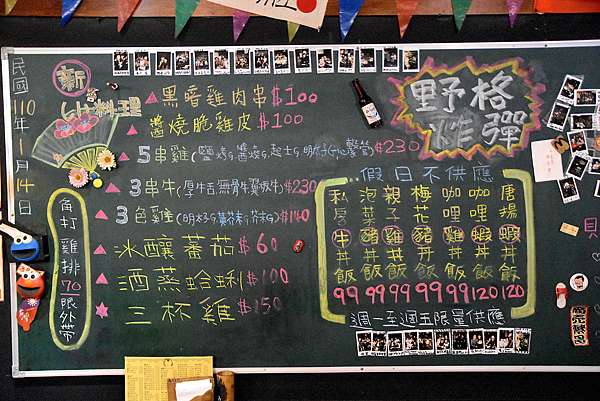 民國110年1月14日
新 小料理
黑暗雞肉串 $100
醬燒脆雞皮 $100
5串雞(鹽烤
$230
3串牛(厚牛舌
$230
3色雞(明太子
$140
冰釀蕃茄 $60
酒蒸蛤蜊 $100
三杯雞 $150
角打雞排70限外帶
野格炸彈
...假日不供應
私房牛丼飯 99
泡菜豬丼飯 99
親子雞丼飯 99
梅花豬丼飯 99
咖哩雞丼飯 99
咖哩蝦丼飯 120
唐揚蝦丼飯 120
週一至週五限量供應